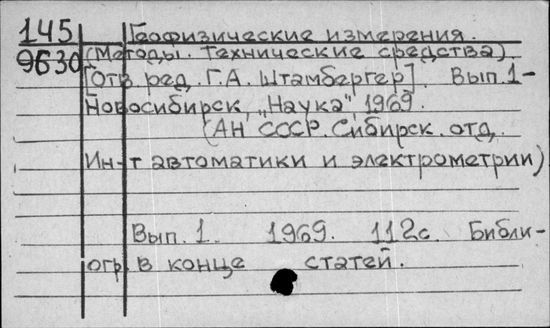 145 Геофизические измерения.
9630 (Методы. Технические средства)
[Отв. ред. Г.А. Штамбергер]. Вып. 1-
Новосибирск, „Наука", 1969.
(АН СССР. Сибирск. отд.
Ин-т автоматики и электрометрии)
Вып. 1. 1969. 112с. Библи-
огр. в конце статей.